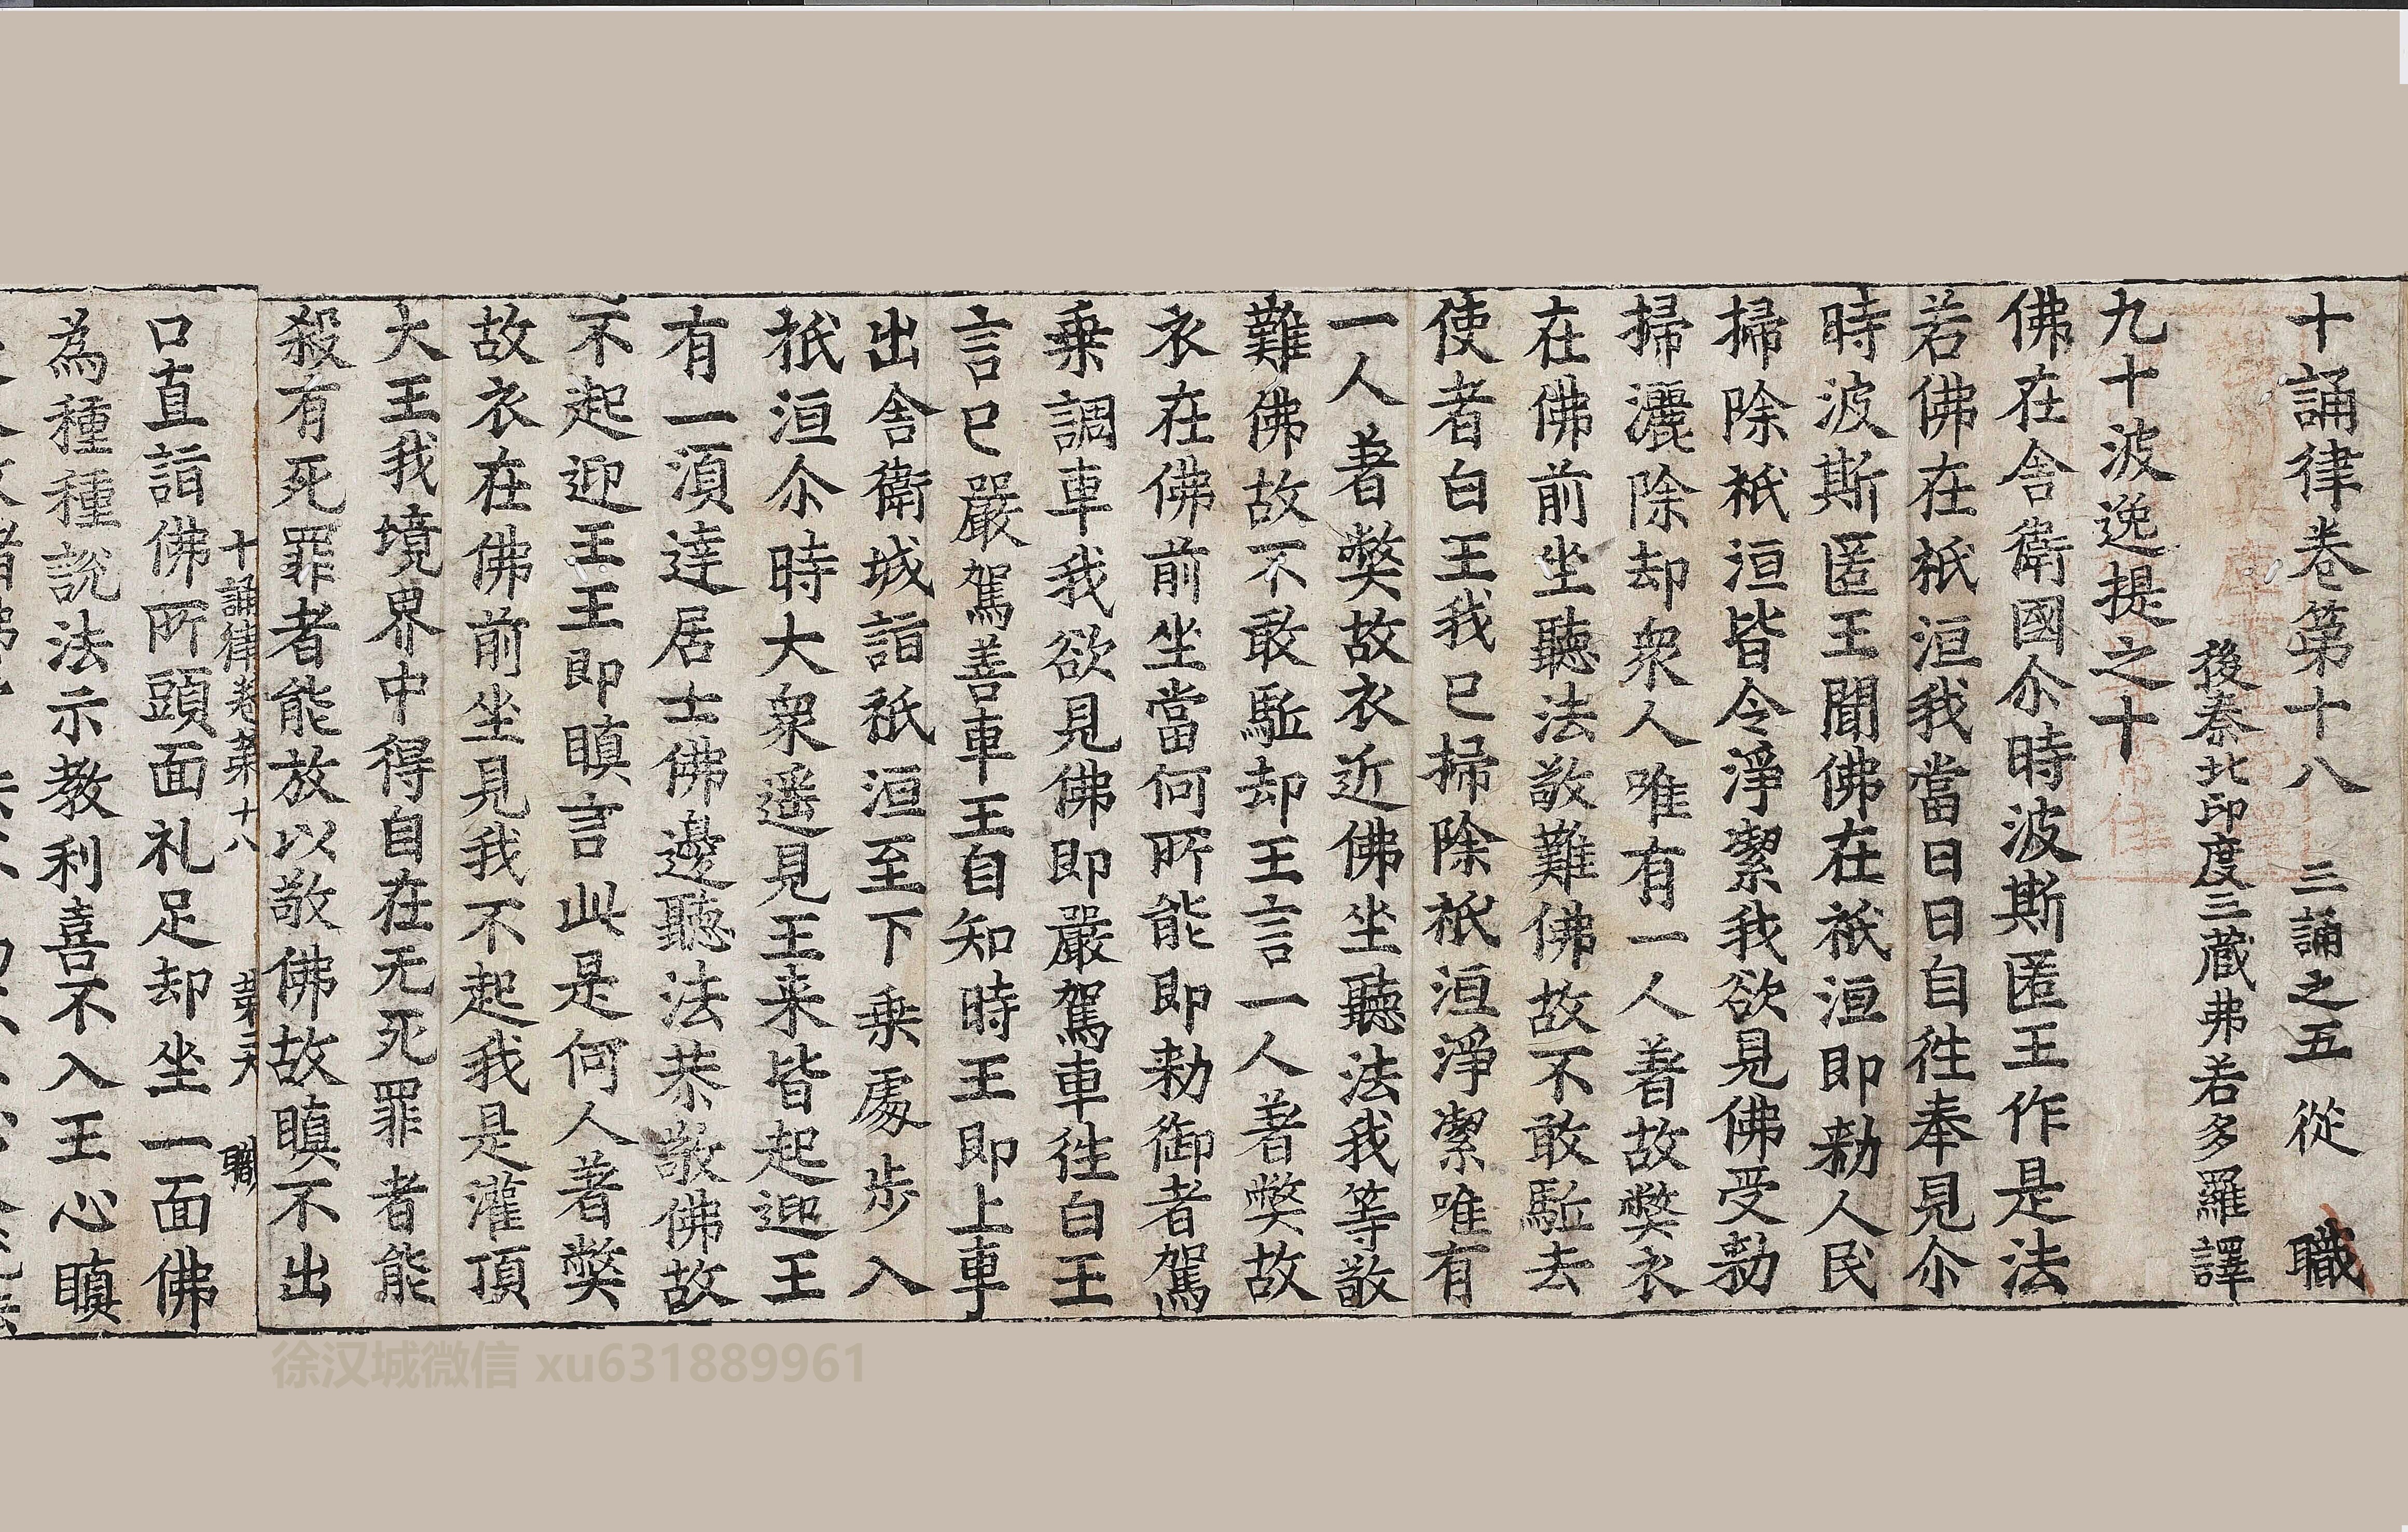 十誦律卷第十八 三誦之五 從 職
後秦北印度三藏弗若多羅譯
九十波逸提之十
佛在舍衛國尒時波斯匿王作是法
若佛在祇洹我當日日自徃奉見尒
時波斯匿王聞佛在祇洹即勑人民
掃除祇洹皆令淨潔我欲見佛受勑
掃灑除却衆人唯有一人著故弊衣
在佛前坐聽法敬難佛故不敢駈去
使者白王我已掃除祇洹淨潔唯有
一人著弊故衣近佛坐聽法我等敬
難佛故不敢駈却王言一人著弊故
衣在佛前坐當何所能即勑御者駕
乗調車我欲見佛即嚴駕車徃白王
言已嚴駕善車王自知時王即上車
出舍衛城詣祇洹至下乗處步入
祇洹尒時大衆遥見王来皆起迎王
有一湏達居士佛邊聽法恭敬佛故
不起迎王王即瞋言此是何人著弊
故衣在佛前坐見我不起我是灌頂
大王我境界中得自在无死罪者能
殺有死罪者能放以敬佛故瞋不出
十誦律卷第十八 職
口直詣佛所頭面礼足却坐一面佛
為種種說法示教利喜不入王心瞋
徐汉城微信 xu631889961